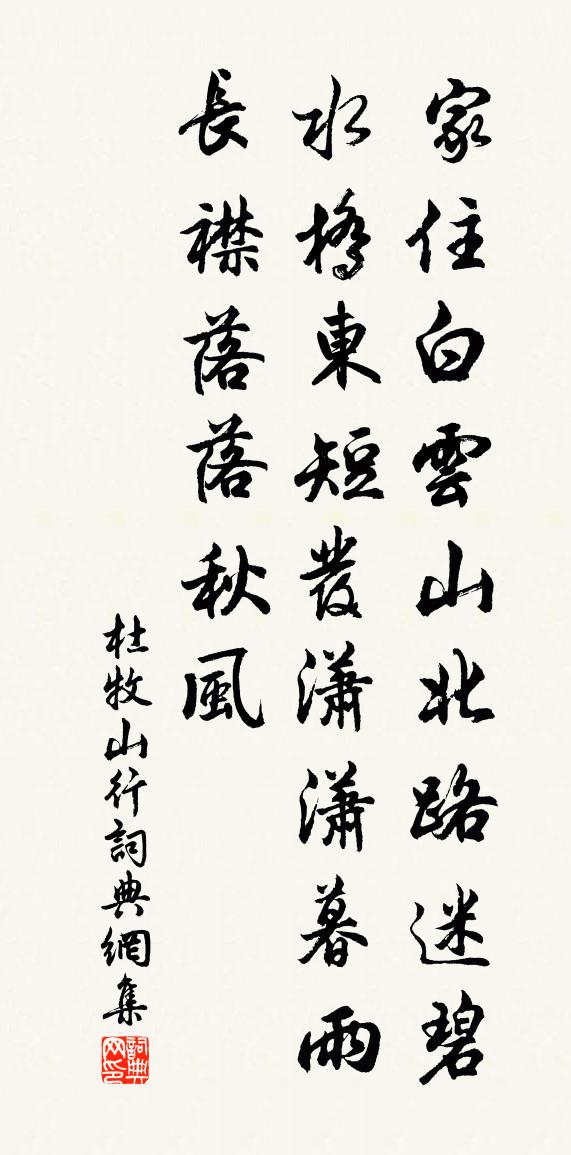 家住白雲山北路迷碧
水橋東短發瀟瀟暮雨
長襟落落秋風
杜牧山行詞典網集
詞典网印